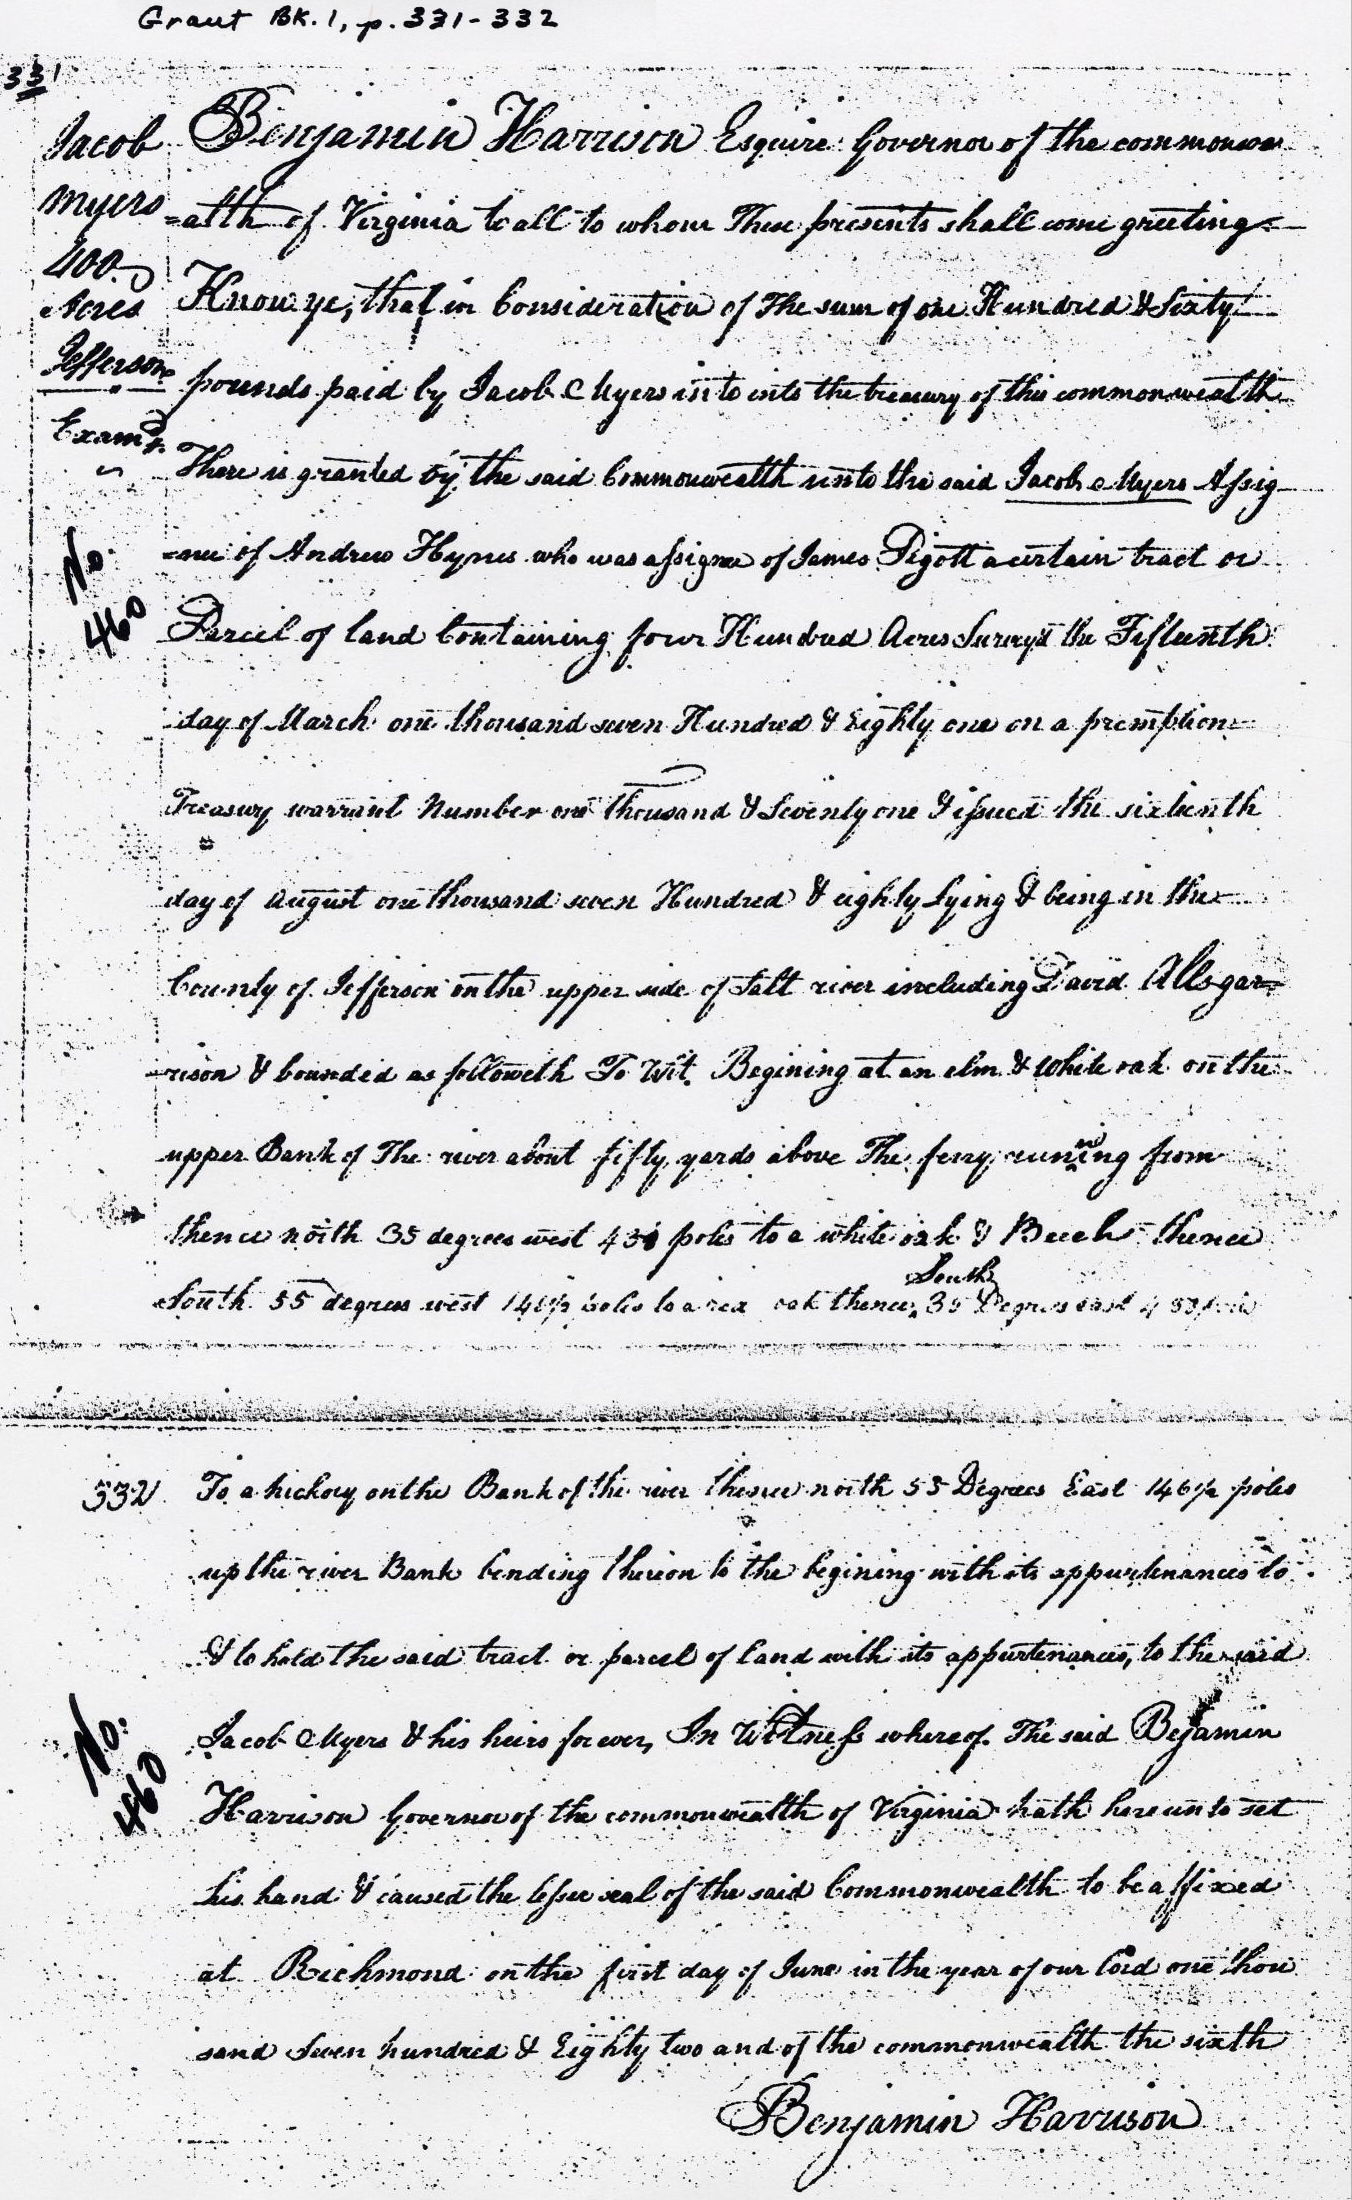 Grant BK. 1, p. 331-332
331
Jacob
Myers
400
Acres
Jefferson
Exam.d
No.
460
Benjamin Harrison Esquire Governor of the commonwe
=alth of Virginia to all to whom These presents shall come greeting
Know ye, that in Consideration of The sum of one Hundred & Sixty
pounds paid by Jacob Myers into into the treasury of this commonwealth
There is granted by the said Commonwealth unto the said Jacob Myers Assig
=nee of Andrew Hynes who was assignee of James Pigott a certain tract or
Parcel of land Containing four Hundred Acres Survey'd the Fifteenth
day of March one thousand seven Hundred & Eighty one on a premption
Treasury warrant Number one thousand & Seventy one & issued the sixteenth
day of August one thousand seven Hundred & eighty lying & being in the
County of Jefferson on the upper side of Salt river including David Alls gar=
rison & bounded as followeth To Wit. Begining at an elm & White oak on the
upper Bank of The river about fifty yards above The ferry runing from
thence north 35 degrees west 43 poles to a white oak & Beech thence
South 55 degrees west 146½ poles to a oak thence South 35 Degrees east 4 poles
332 To a hickory on the Bank of the river thence north 55 Degrees East 146½ poles
up the river Bank bending thereon to the begining with its appurtenances to
& to hold the said tract or parcel of land with its appurtenances, to the said
No.
460
Jacob Myers & his heirs forever, In Witness whereof The said Bejamin
Harrison Governor of the commonwealth of Virginia hath hereunto set
his hand & caused the lesser seal of the said Commonwealth to be affixed
at Richmond on the first day of June in the year of our Lord one thou
sand Seven hundred & Eighty two and of the commonwealth the sixth
Benjamin Harrison